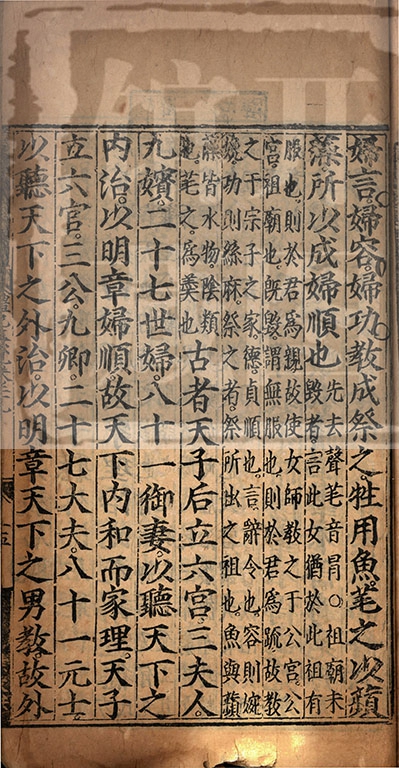 婦言。婦容。婦功。教成祭之。牲用魚。芼之以蘋
藻。所以成婦順也
先去聲芼音冒○祖廟未
毀者。言此女猶於此祖有
服也。則於君爲親。故使女師教之于公宮。公
宮。祖廟也。既毀。謂無服也。則於君爲疏。故教
之于宗子之家。德。貞順也。言。辭令也。容則婉
娩。功則絲麻。祭之者。祭所出之祖也。魚與蘋
藻皆水物。陰類
也。芼之。爲羹也
古者天子后立六宮。三夫人。
九嬪。二十七世婦。八十一御妻。以聽天下之
內治。以明章婦順。故天下內和而家理。天子
立六官。三公。九卿。二十七大夫。八十一元士。
以聽天下之外治。以明章天下之男教。故外